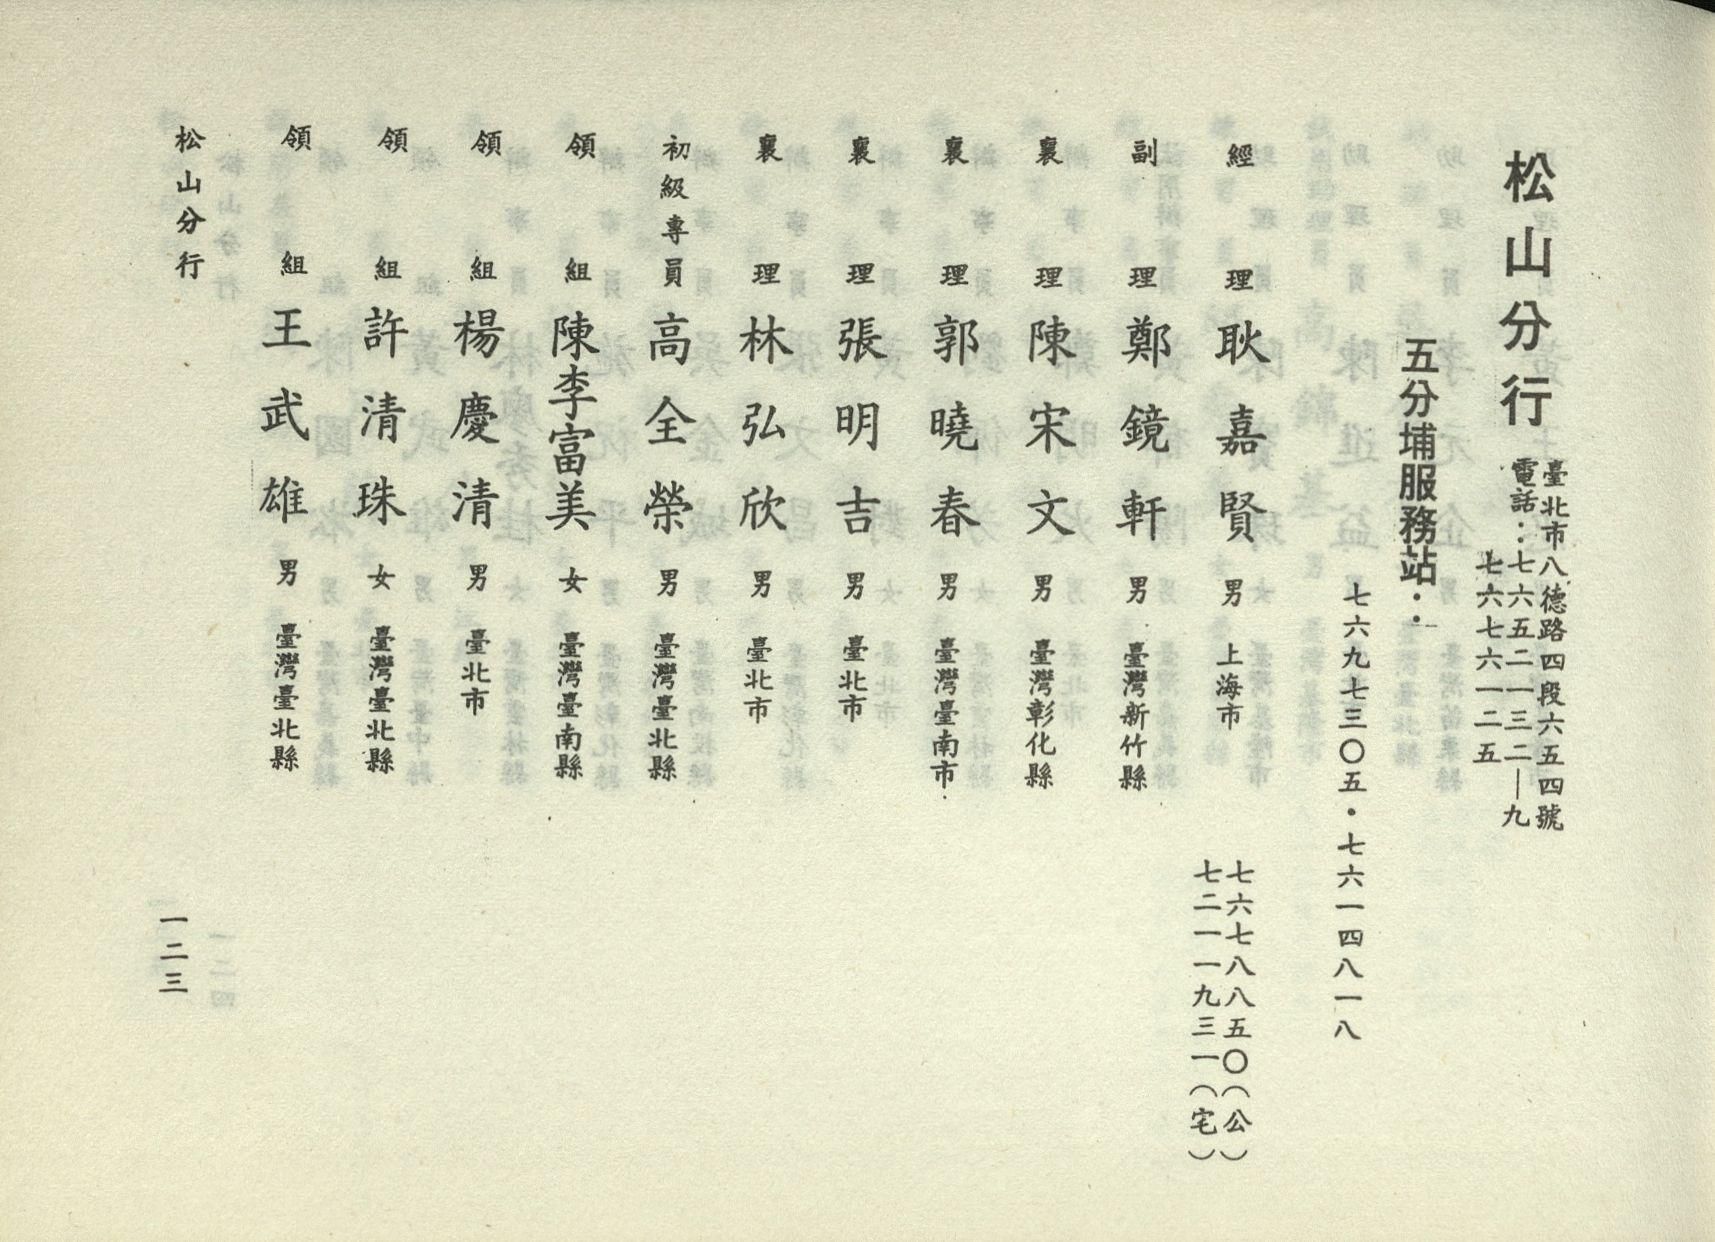 松山分行
臺北市八德路四段六五四號
電話：七六五二一三二—九
七六七六一二五
五分埔服務站：
七六九七三〇五・七六一四八一八
經理 耿嘉賢 男 上海市 七六七八八五〇（公）
七二一一九三一（宅）
副理 鄭鏡軒 男 臺灣新竹縣
襄理 陳宋文 男 臺灣彰化縣
襄理 郭曉春 男 臺灣臺南市
襄理 張明吉 男 臺北市
襄理 林弘欣 男 臺北市
初級專員 高全榮 男 臺灣臺北縣
領組 陳李富美 女 臺灣臺南縣
領組 楊慶清 男 臺北市
領組 許清珠 女 臺灣臺北縣
領組 王武雄 男 臺灣臺北縣
松山分行
一二三